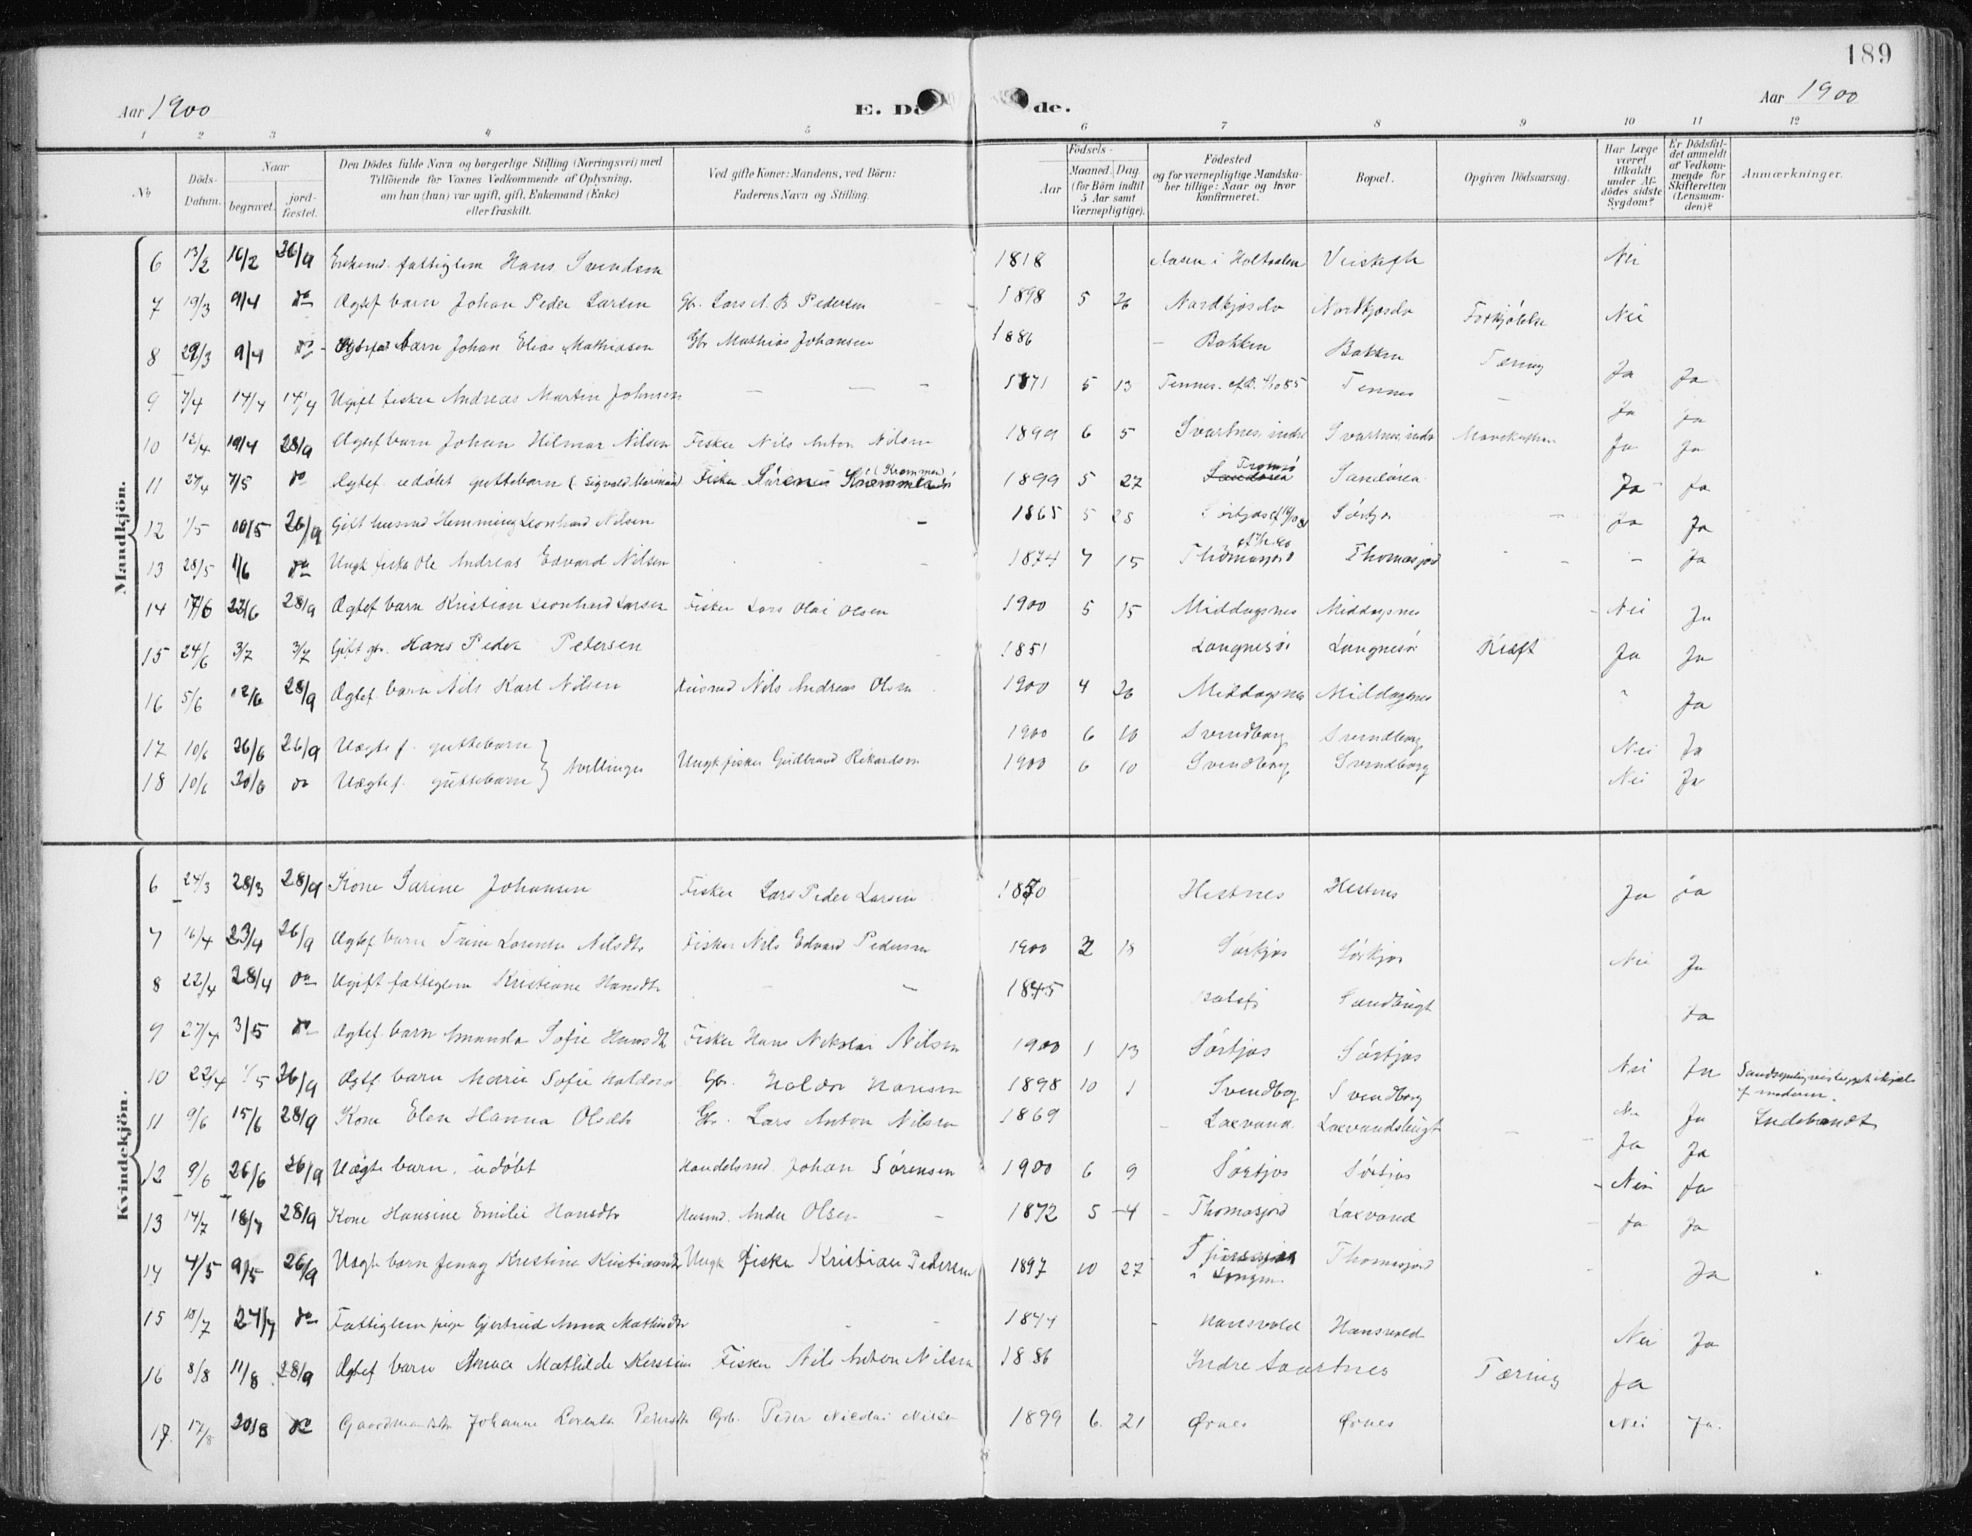 189
Aar 1900 E. Dö de. Aar 1900
1 2 3 4 5 6 7 8 9 10 11 12
No
Döds-Datum.
Naar
begravet.
jord-fæstet.
Den Dödes fulde Navn og borgerlige Stilling (Næringsvei) med
Tilföiende for Voxnes Vedkommende af Oplysning,
om hun (han) var ugift, gift, Enkemand (Enke)
eller fraskilt.
Ved gifte Koner: Mandens, ved Börn:
Faderens Navn og Stilling.
Födsels-
Aar
Maaned Dag
(for Börn indtil
5 Aar samt
Værnepligtige).
Födested
og for værnepligtige Mandska-
ber tillige: Naar og hvor
konfirmeret.
Bopæl.
Opgiven Dödsaarsag.
Har Læge
været
tilkaldt
under Af-
dödes sidste
Sygdom?
Er Dödsfal-
det anmeldt
af Vedkom-
mende for
Skifteretten
(Lensman-
den)?
Anmærkninger.
Mandkjön.
6 13/2 16/2 26/9 Enkemd. fattiglem Hans Svendsen 1818 Aasen i Holtaalen Nei
7 19/3 9/4 do Ægtef barn Johan Peder Larsen Gb. Lars N. B Pedersen 1898 5 26 Nordkjosbo Nordkjosbo Forkjølelse Nei
8 29/3 9/4 do Ægtefød barn Johan Elias Mathiasen Gbr Mathias Johansen 1886 Bakken Bakken Tæring Ja Ja
9 7/4 14/4 14/4 Ugift fisker Andreas Martin Johnsen 1871 5 13 Tennes. Tennes Ja Ja
10 12/4 19/4 28/9 Ægtef barn Johan Hilmar Nilsen Fisker Nils Anton Nilsen 1899 6 5 Svartnes, indre Svartnes, indre Ja Ja
11 27/4 7/5 do Ægtef. udøbt guttebarn (Sigvald Marinius) Fisker Sørenes (Krommen) 1899 5 27 Tromsø Sandøren Sandøren Ja Ja
12 1/5 10/5 26/9 Gift husmd Hemming Leonhard Nilsen 1865 5 28 Ja Ja
13 28/5 1/6 do Ungk fisker Ole Andreas Edvard Nilsen 1874 7 15 Thomasjord Thomasjord Ja
14 17/6 22/6 28/9 Ægtef barn Kristian Leonhard Larsen Fisker Lars Olai Olsen 1900 5 15 Middagsnes Middagsnes Nei Ja
15 24/6 3/7 3/7 Gift gbr. Hans Peder Petersen 1851 Langnesør Langnesør Kræft Ja Ja
16 5/6 12/6 28/9 Ægtef barn Nils Karl Nilsen Husmd Nils Andreas Olsen 1900 4 26 Middagsnes Middagsnes " Ja
17 10/6 26/6 26/9 Uægte f. guttebarn 1900 6 10 Svendborg Svendborg Nei Ja
tvillinger Ungk fisker Gudbrand Rikardsen
18 10/6 20/6 do Uægte f. guttebarn 1900 6 10 Svendborg Svendborg Nei Ja
Kvindekjön.
6 24/3 28/3 28/9 Kone Sarine Johansen Fisker Lars Peder Larsen 1870 Hestnes Hestnes Ja Ja
7 16/4 23/4 26/9 Ægtef barn Trine Lorentse Nilsdtr Fisker Nils Edvard Pedersen 1900 2 18 Sørkjos Sørkjos Nei Ja
8 22/4 28/4 do Ugift fattiglem Kristiane Hansdtr 1845 Balsfj Sandbugt Ja
9 27/4 3/5 do Ægtef. barn Amanda Sofie Hansdtr Fisker Hans Nikolai Nilsen 1900 1 13 Sørkjos Sørkjos Nei Ja Sandsynligvis ligget ihjæl
af moderen.
10 22/4 1/5 26/9 Ægtf. barn Marie Sofie Haldors Gbr. Haldor Hansen 1898 10 1 Svendborg Svendborg Nei Ja Indebrændt
11 9/6 15/6 28/9 Kone Elen Hanna Olsdtr Gbr. Lars Anton Nilsen 1869 Laxvand Laxvandsbugt Ja Ja
12 9/6 26/6 26/9 Uægte barn. udøbt Handelsmd. Johan Sørensen 1900 6 9 Sørkjos Sørkjos Nei Ja
13 14/7 18/7 28/9 Kone Hansine Emilie Hansdtr Husmd. Ander Olsen 1872 5 4 Thomasjord Laxvand Ja Ja
14 4/5 9/5 26/9 Uægte barn Jenny Kristine Kristiansdtr Ungk fisker Kristian Pedersen 1897 10 27 i Lyngen. Thomasjord Ja
15 10/7 24/7 do Fattiglem pige Gjertrud Anna Mathisdtr 1844 Hansvold Hansvold Nei Ja
16 8/8 11/8 28/9 Ægtef barn Anna Mathilde Kerstine Fisker Nils Anton Nilsen 1886 Indre Svartnes Tæring Ja
17. 17/8 20/8 do Johanne Lorentse Pedersdtr Gbr. Peder Nicolai Nilsen 1899 6. 21 Ørnes Ørnes Nei Ja.